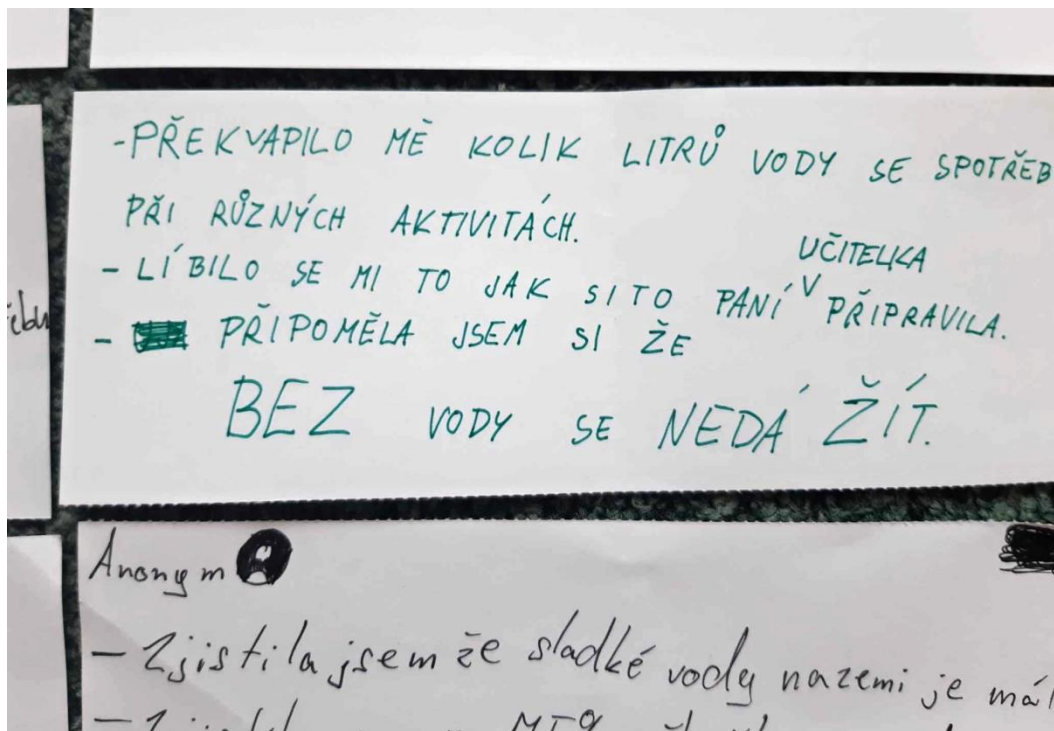 -PŘEKVAPILO MĚ KOLIK LITRŮ VODY SE SPOTŘEB
PŘI RŮZNÝCH AKTIVITÁCH.
- LÍBILO SE MI TO JAK SI TO PANÍ UČITELKA PŘIPRAVILA.
- PŘIPOMĚLA JSEM SI ŽE
BEZ VODY SE NEDÁ ŽÍT.
Anonym
- Zjistila jsem že sladké vody nazemi je mál